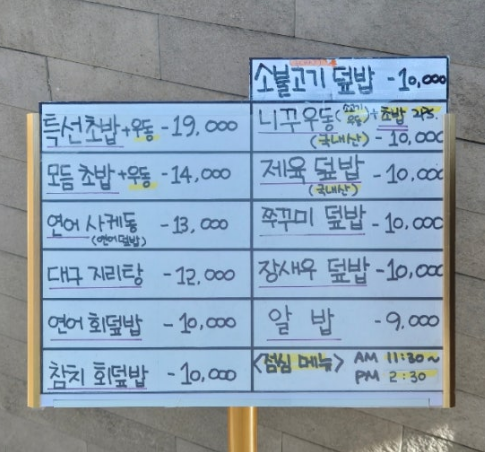 소불고기 덮밥 - 10,000
특선초밥+우동 - 19,000
니꾸우동(소고기우동)+초밥 2PS.
(국내산) - 10,000
모듬 초밥+우동 - 14,000
제육 덮밥 - 10,000
(국내산)
연어 사케동 - 13,000
(연어덮밥)
쭈꾸미 덮밥 - 10,000
대구 지리탕 - 12,000
장새우 덮밥 - 10,000
연어 회덮밥 - 10,000
알 밥 - 9,000
참치 회덮밥 - 10,000
<점심 메뉴> AM 11:30~
PM 2:30